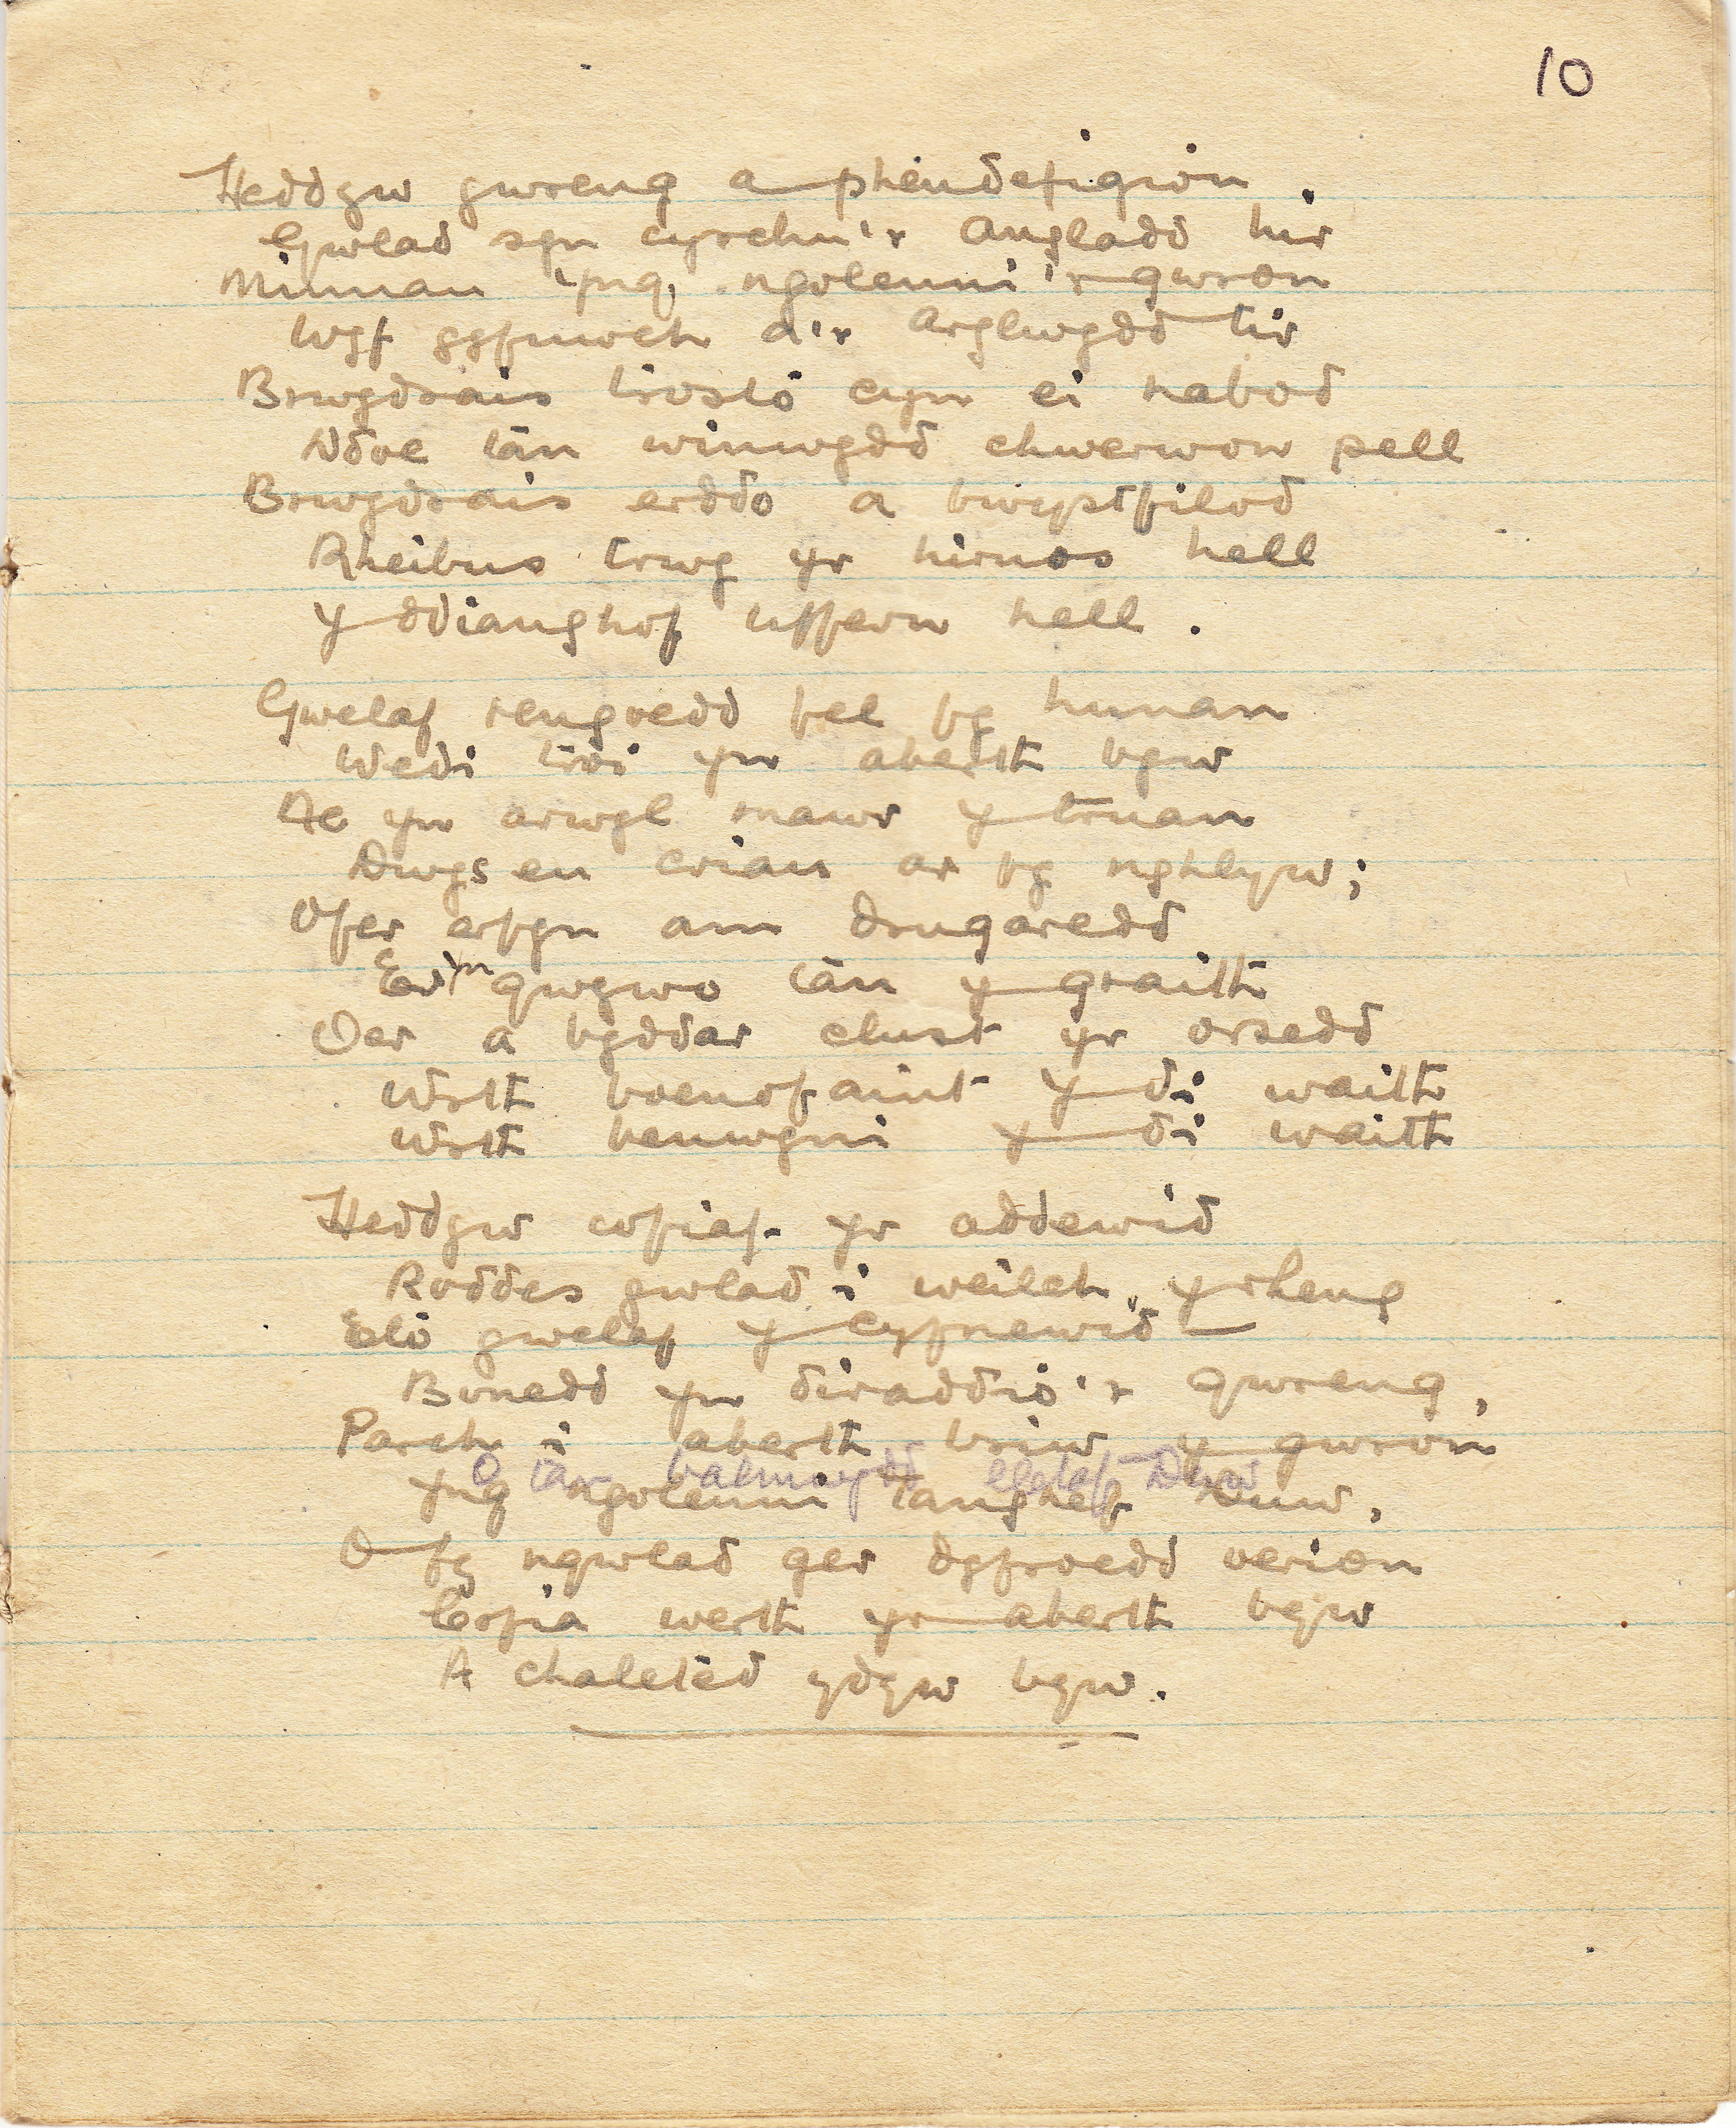 10
Heddyw gwreng a phendefigion.
Gwlad syn cyrchu'r angladd hir
Minnau yng ngoleuni'r gwron
Wyf gyfuwch a'r Arglwydd tir
Brwydrais trosto cyn ei nabod
Ddoe tân winwydd chwerwon pell
Brwydrais erddo a bwystfilod
Rheibus trwy yr hirnos hell
Y ddianghof uffern hell.
Gwelaf rengoedd fel fy hunan
Wedi troi yn aberth byw
Ac yn arwyl mawr y truan
Dwys eu crian ar fy nghlyw;
Ofer erfyn am drugaredd
Er yn gwywo tân y graith
Oer a byddar clust yr orsedd
Wrth boenofaint y di waith
Wrth benwyni y di waith
Heddyw cofiaf yr addewid
Roddes gwlad i weilch yrheng
Eto gwelaf y cyfnewid —
Bonedd yn diraddio'r gwreng,
Parch i aberth briw y gwron
O tan balmwydd Duw
Yng ngoleuni tanghef Duw,
O fy ngwlad ger dyfroedd oerion
Cofia werth yr aberth byw
A chaleted ydyw byw.